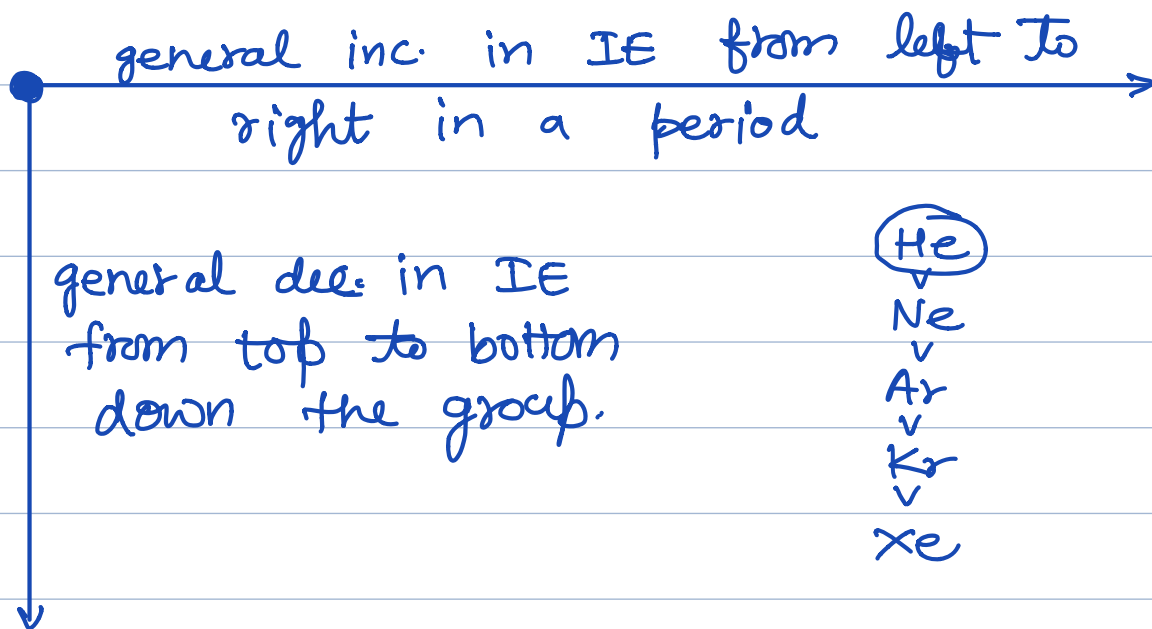 general inc. in IE from left to
right in a period
He
general dec. in IE
v
Ne
from top to bottom
v
Ar
down the group.
v
Kr
v
Xe